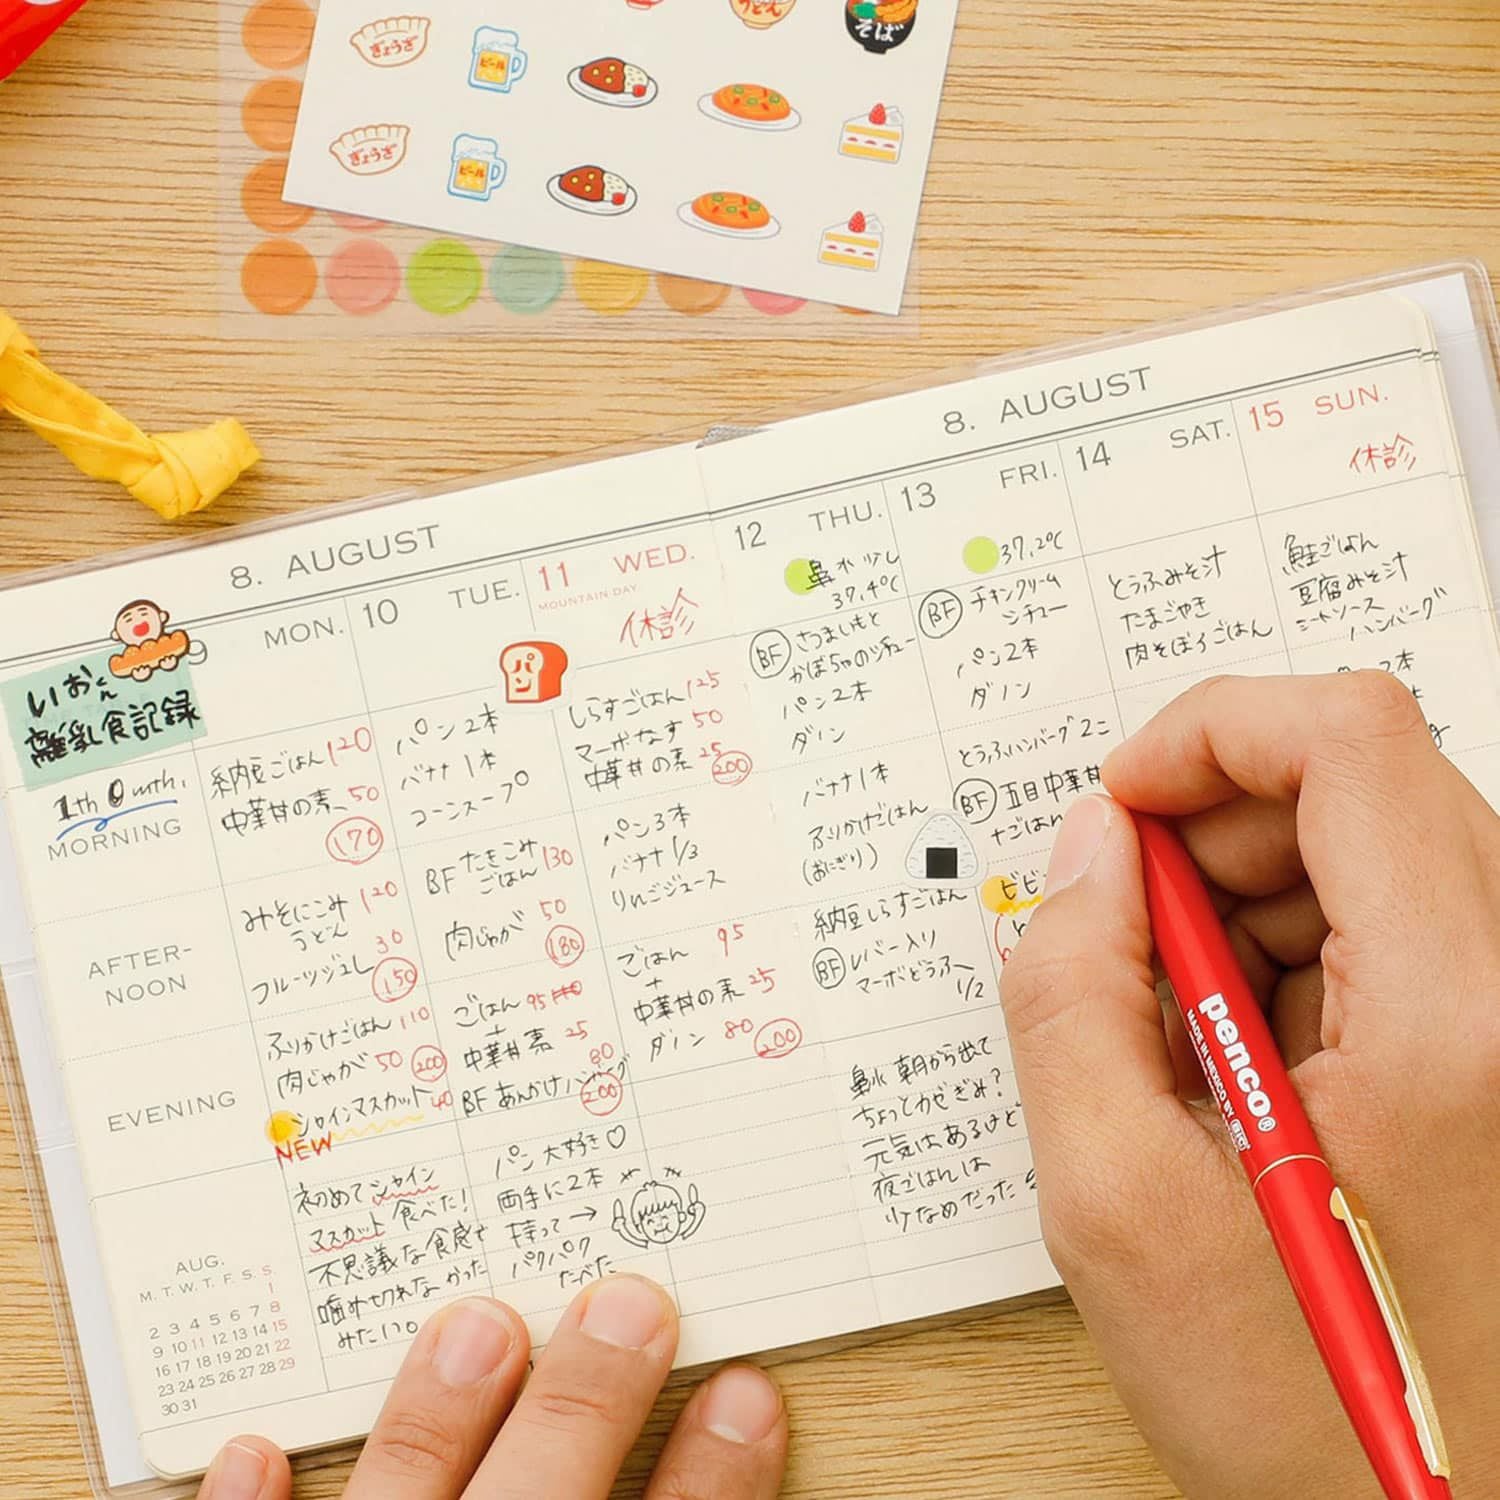 うどん
そば
ぎょうざ
ビール
ぎょうざ
ビール
8. AUGUST
9 MON.
10 TUE.
11 WED.
MOUNTAIN DAY
休診
いおくん
離乳食記録
パン
1th 0 mth.
MORNING
納豆ごはん 120
中華丼の素 50
170
パン2本
バナナ1本
コーンスープ
しらすごはん 125
マーボなす 50
中華丼の素 25
200
AFTER-
NOON
みそにこみ 120
うどん
フルーツジュレ 30
150
BF たきこみ 130
ごはん
肉じゃが 50
180
パン3本
バナナ 1/3
りんごジュース
EVENING
ふりかけごはん 110
肉じゃが 50 200
シャインマスカット 40
NEW
ごはん 95
+
中華丼素 25
80
BF あんかけハンバーグ
200
ごはん 95
+
中華丼の素 25
ダノン 80 200
初めてシャイン
マスカット食べた!
不思議な食感で
噛み切れなかった
みたい。
パン大好き♡
両手に2本
持って→
パクパク
たべた
AUG.
M. T. W. T. F. S. S.
1
2 3 4 5 6 7 8
9 10 11 12 13 14 15
16 17 18 19 20 21 22
23 24 25 26 27 28 29
30 31
8. AUGUST
12 THU.
13 FRI.
14 SAT.
15 SUN.
休診
鼻水少し
37.4℃
37.2℃
BF さつまいもと
かぼちゃのシチュー
パン2本
ダノン
BF チキンクリーム
シチュー
パン2本
ダノン
とうふみそ汁
たまごやき
肉そぼろごはん
鮭ごはん
豆腐みそ汁
ミートソース
ハンバーグ
バナナ1本
ふりかけごはん
(おにぎり)
とうふハンバーグ2コ
BF 五目中華丼
+ごはん
納豆しらすごはん
BF レバー入り
マーボどうふ
1/2
鼻水 朝から出て
ちょっとカゼぎみ?
元気はあるけど
夜ごはんは
少なめだった
penco®
MADE IN MEXICO BY BIC